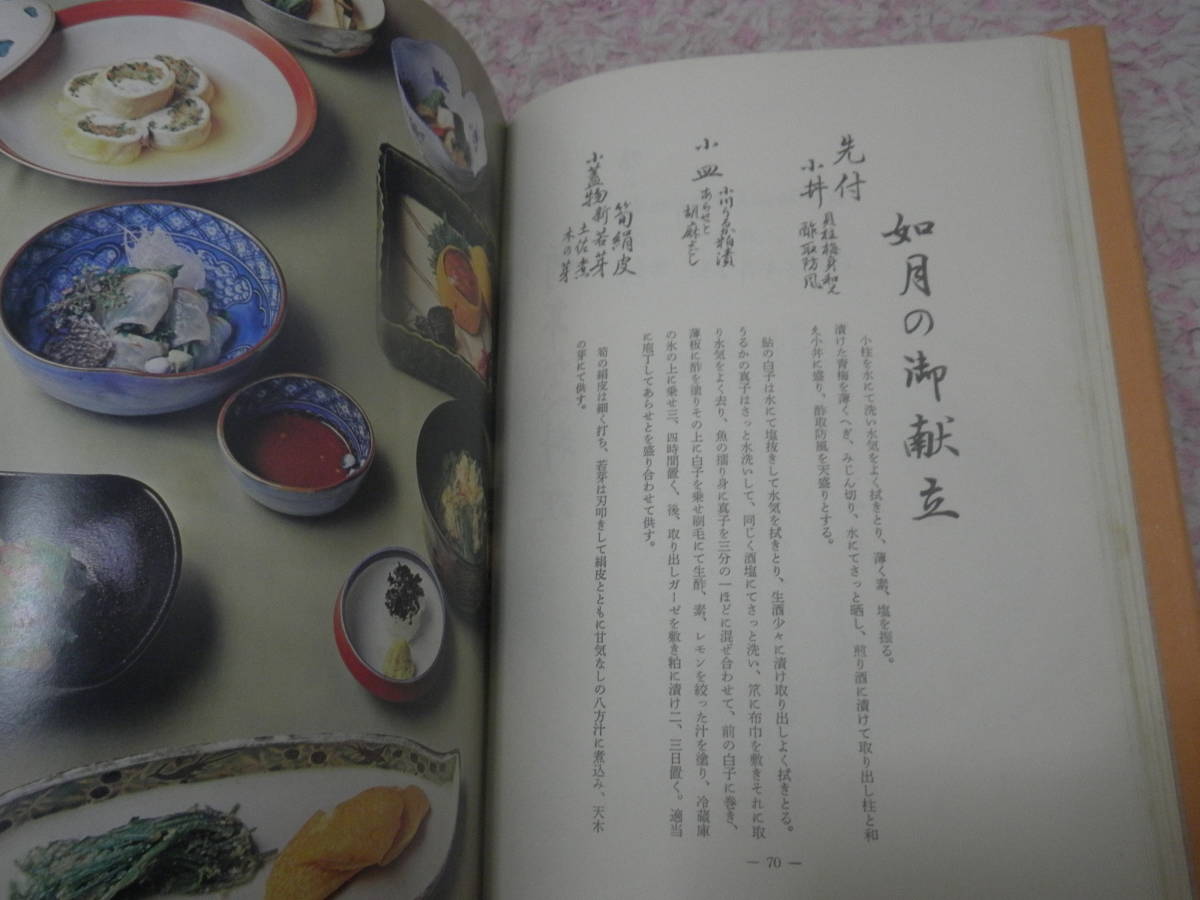 如月の御献立
先付
小丼 貝柱梅貝和え
酢取防風
小皿 小川うるか粕漬
あらせと
胡麻よごし
筍絹皮
小蓋物 新若芽
土佐煮
木の芽
小柱を水にて洗い水気をよく拭きとり、薄く素、塩を振る。
漬けた青梅を薄くへぎ、みじん切り、水にてさっと晒し、煎り酒に漬けて取り出し柱と和
え小丼に盛り、酢取防風を天盛りとする。
鮎の白子は水にて塩抜きして水気を拭きとり、生酒少々に漬け取り出しよく拭きとる。
うるかの真子はさっと水洗いして、同じく酒塩にてさっと洗い、笊に布巾を敷きそれに取
り水気をよく去り、魚の擂り身に真子を三分の一ほどに混ぜ合わせて、前の白子に巻き、
薄板に酢を塗りその上に白子を乗せ刷毛にて生酢、素、レモンを絞った汁を塗り、冷蔵庫
の氷の上に乗せ三、四時間置く。後、取り出しガーゼを敷き粕に漬け二、三日置く。適当
に庖丁してあらせとを盛り合わせて供す。
筍の絹皮は細く打ち、若芽は刃叩きして絹皮とともに甘気なしの八方汁に煮込み、天木
の芽にて供す。
— 70 —